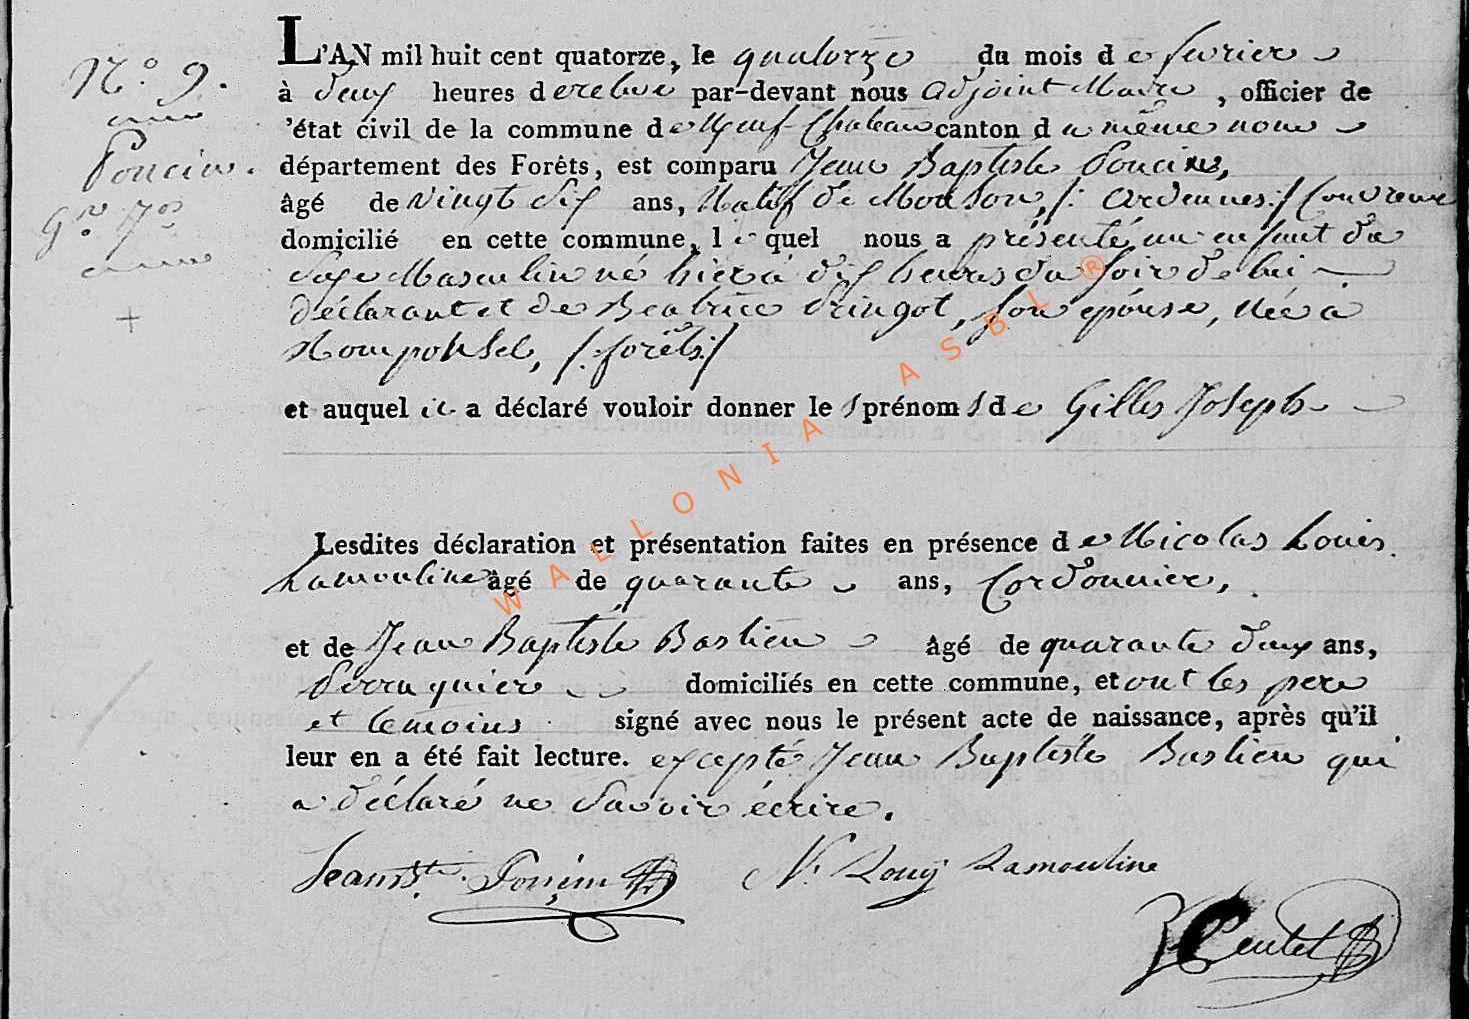 L'AN mil huit cent quatorze, le quatorze du mois de fevrier
N.° 9.
à deux heures de relevée par-devant nous adjoint Maire, officier de
'état civil de la commune de Neuf-Chateau canton du même nom
Poncin.
département des Forêts, est comparu Jean Baptiste Poncin,
âgé de vingt six ans, Natif de Mouson, /: Ardennes :/ Couvreur
G.es J.os
domicilié en cette commune, lequel nous a présenté un enfant du
Sexe Masculin né hier à dix heures du soir de lui
déclarant et de Beatrice Pringot, son épouse, née à
+
Hompohsel, /: forêts :/
et auquel il a déclaré vouloir donner les prénoms de Gilles Joseph
Lesdites déclaration et présentation faites en présence de Nicolas Louis
Lamouline âgé de quarante ans, Cordonnier,
et de Jean Baptiste Bastien âgé de quarante deux ans,
Perruquier domiciliés en cette commune, et ont les pere
et temoins signé avec nous le présent acte de naissance, après qu'il
leur en a été fait lecture. excepté Jean Baptiste Bastien qui
a déclaré ne savoir écrire.
Jean Bte. Ponsin N. Louis Lamouline
WALLONIA ASBL ®